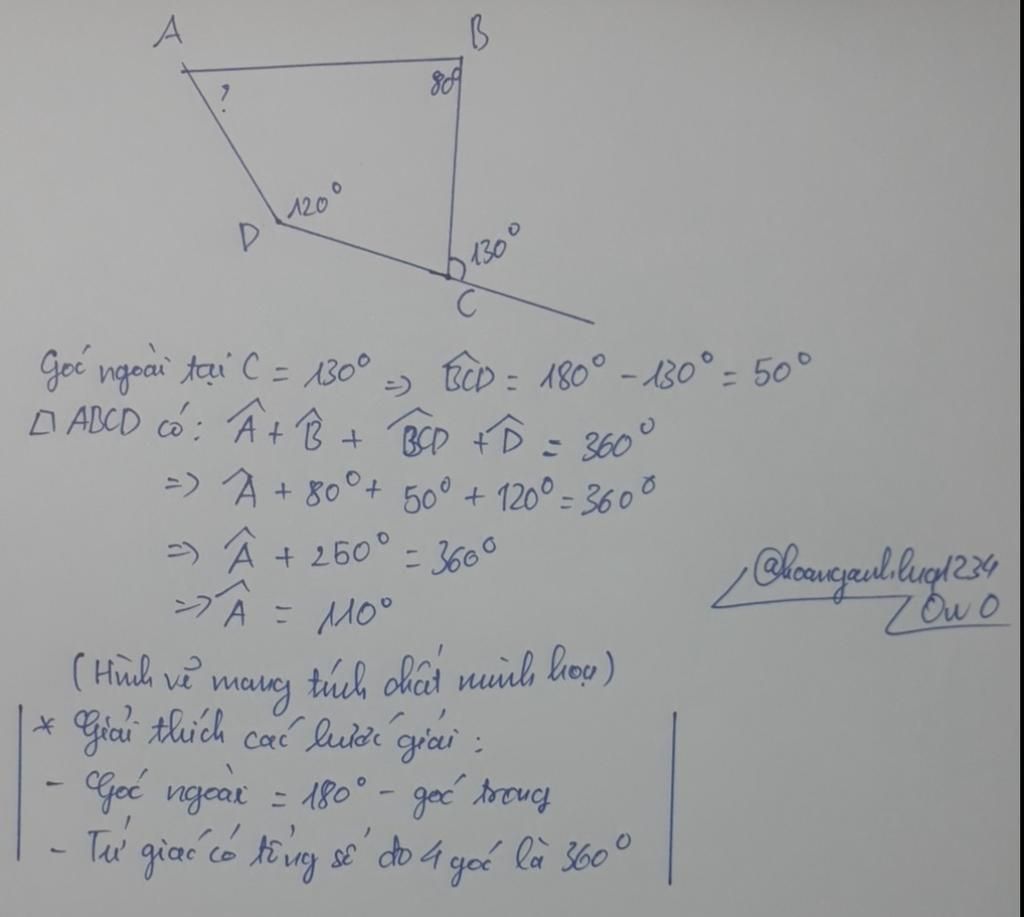 A B
80°
?
120°
D
130°
C
Góc ngoài tại C = 130° => B̂CD = 180° - 130° = 50°
□ ABCD có: Â + B̂ + B̂CD + D̂ = 360°
=> Â + 80° + 50° + 120° = 360°
=> Â + 250° = 360°
=> Â = 110°
@hoanganh.lug1234
OwO
(Hình vẽ mang tính chất minh hoạ)
* Giải thích các bước giải:
- Góc ngoài = 180° - góc trong
- Tứ giác có tổng số đo 4 góc là 360°